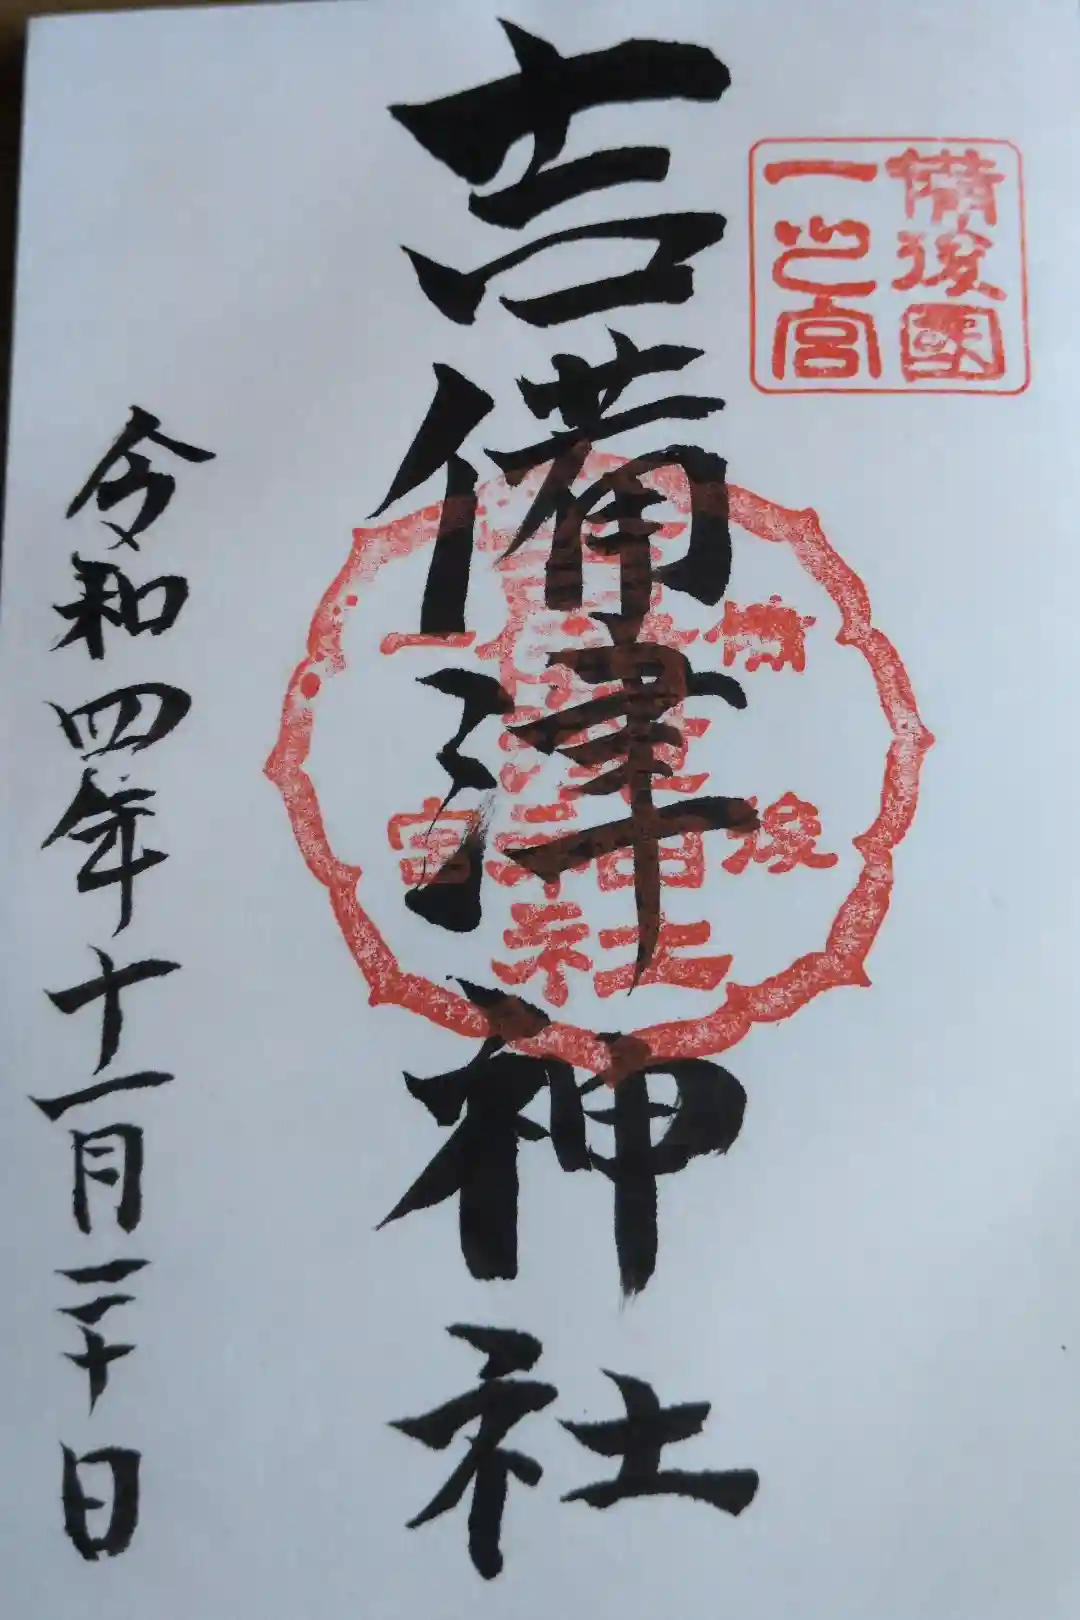 備後國
一之宮
吉備津神社
備後
一宮
令和四年十一月二十日